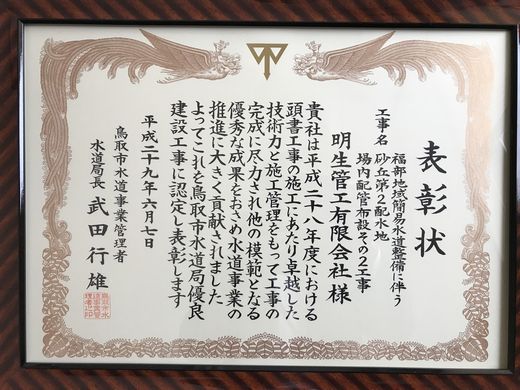 表彰状
工事名
福部地域簡易水道整備に伴う
砂丘第2配水地
場内配管布設その2工事
明生管工有限会社 様
貴社は平成二十八年度における
頭書工事の施工にあたり卓越した
技術力と施工管理をもって工事の
完成に尽力され他の模範となる
優秀な成果をおさめ水道事業の
推進に大きく貢献されました
よってこれを鳥取市水道局優良
建設工事に認定し表彰します
平成二十九年六月七日
鳥取市水道事業管理者
水道局長 武田行雄